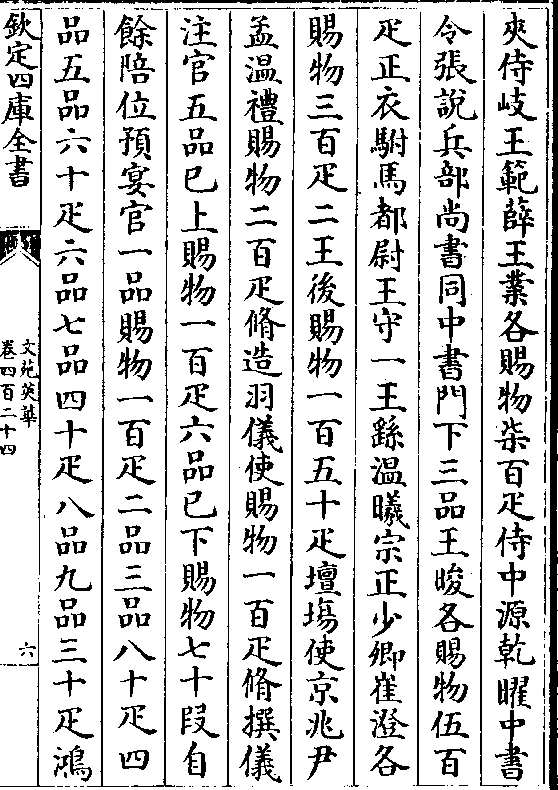 夾侍岐王範薛王業各賜物柒百疋侍中源乾曜中書
令張說兵部尚書同中書門下三品王晙各賜物伍百
疋正衣駙馬都尉王守一王繇温曦宗正少卿崔澄各
賜物三百疋二王後賜物一百五十疋壇塲使京兆尹
孟温禮賜物二百疋脩造羽儀使賜物一百疋脩撰儀
注官五品已上賜物一百疋六品已下賜物七十段自
餘陪位預宴官一品賜物一百疋二品三品八十疋四
品五品六十疋六品七品四十疋八品九品三十疋鴻
欽定四庫全書
文苑英華
卷四百二十四
六